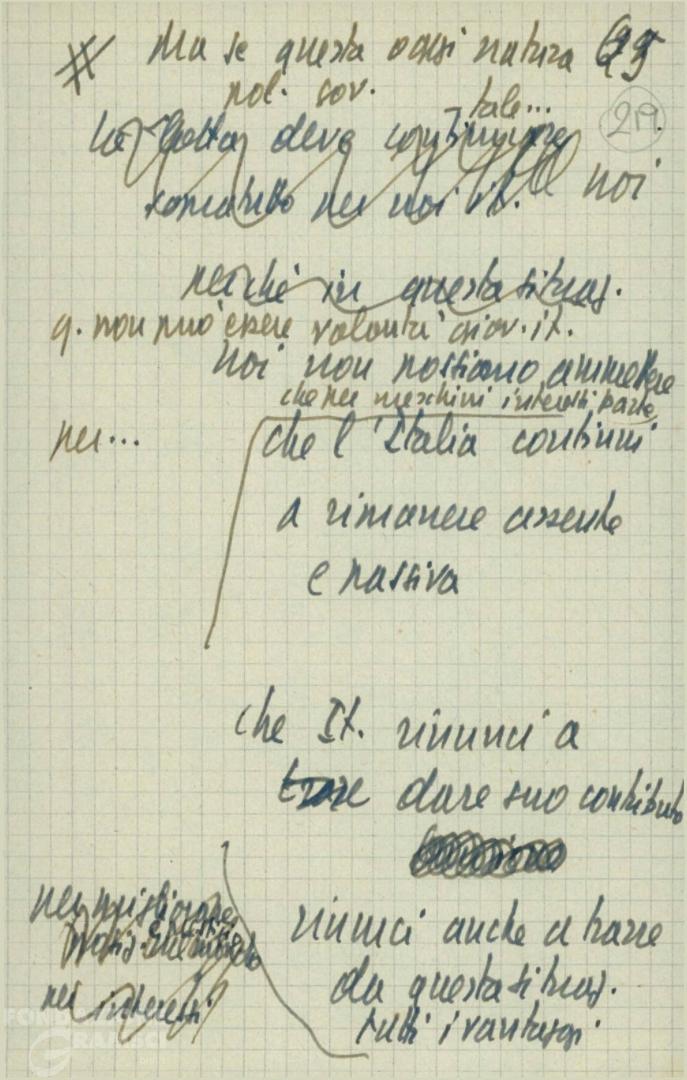 # Ma se questa oggi natura
pol. sov.
tale...
219.
La lotta deve continuare
soprattutto per noi it. noi
perché in questa situaz.
q. non può essere volontà giov. it.
noi non possiamo ammettere
che per meschini interessi parte
per... che l'Italia continui
a rimanere assente
e passiva
che It. rinunci a
dare suo contributo
per migliorare
rinunci anche a trarre
per interessi
da questa situaz.
tutti i vantaggi
FONDAZIONE
GRAMSCI